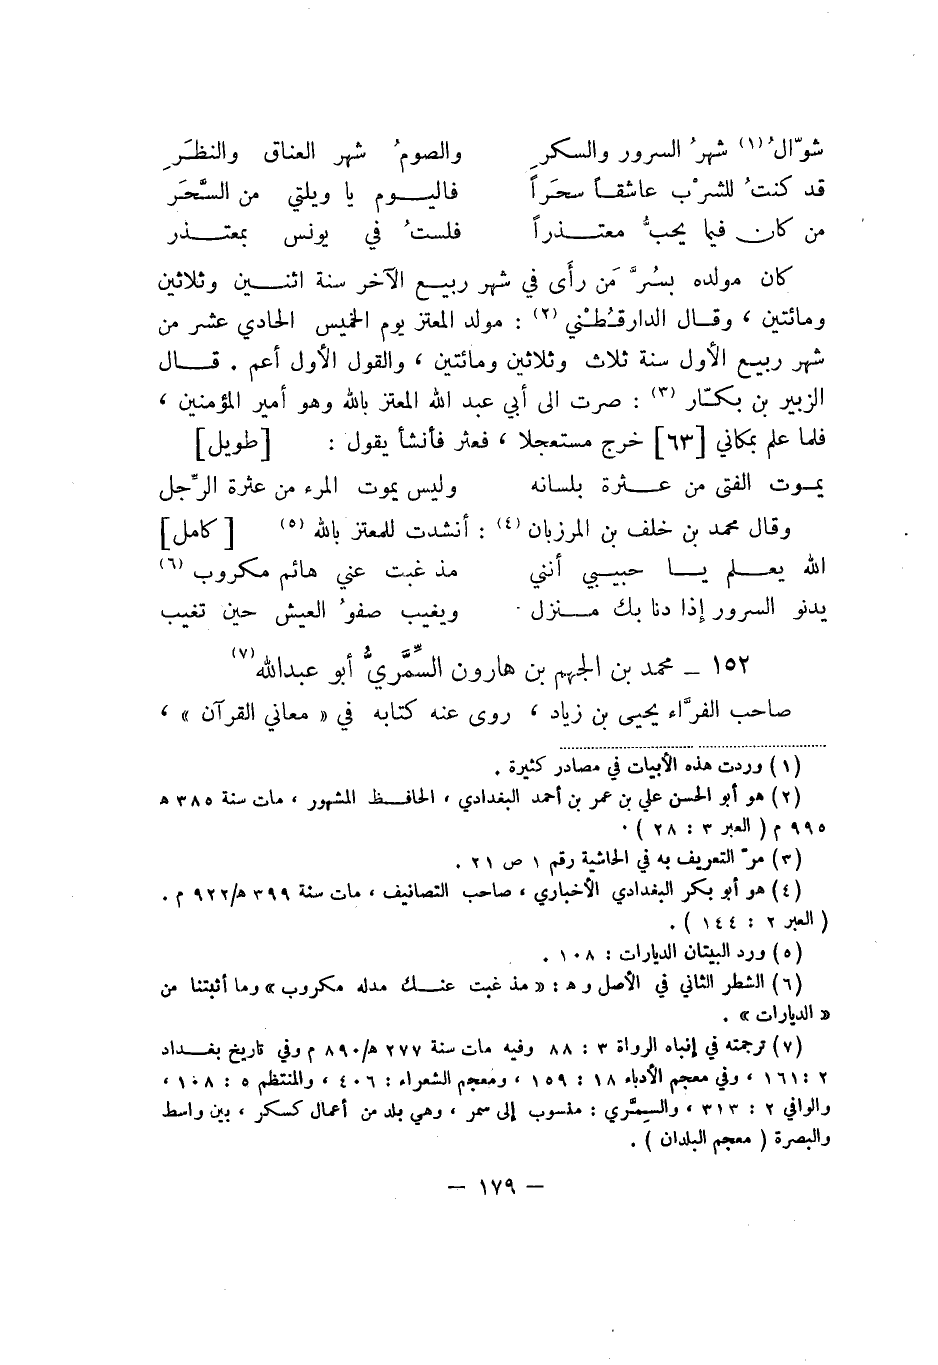 شوّالُ (١) شهرُ السرور والسكرِ والصومُ شهر العناق والنظَرِ
قد كنتُ للشرْب عاشقاً سحَراً فاليوم يا ويلتي من السَّحَر
من كان فيما يحبُّ معتذراً فلستُ في يونس بمعتذر
كان مولده بسُرَّ مَن رأى في شهر ربيع الآخر سنة اثنين وثلاثين
ومائتين ، وقال الدارقُطْني (٢) : مولد المعتز يوم الخميس الحادي عشر من
شهر ربيع الأول سنة ثلاث وثلاثين ومائتين ، والقول الأول أعم . قال
الزبير بن بكّار (٣) : صرت الى أبي عبد الله المعتز بالله وهو أمير المؤمنين ،
فلما علم بمكاني [٦٣] خرج مستعجلا ، فعثر فأنشأ يقول : [طويل]
يموت الفتى من عثرة بلسانه وليس يموت المرء من عثرة الرِّجل
وقال محمد بن خلف بن المرزبان (٤) : أنشدت للمعتز بالله (٥) [كامل]
الله يعلم يا حبيبي أنني مذ غبت عني هائم مكروب (٦)
يدنو السرور إذا دنا بك منزل ويغيب صفوُ العيش حين تغيب
١٥٢ – محمد بن الجهم بن هارون السِّمَّريُّ أبو عبدالله (٧)
صاحب الفرَّاء يحيى بن زياد ، روى عنه كتابه في « معاني القرآن » ،
(١) وردت هذه الأبيات في مصادر كثيرة .
(٢) هو أبو الحسن علي بن عمر بن أحمد البغدادي ، الحافظ المشهور ، مات سنة ٣٨٥ ه
٩٩٥ م ( العبر ٣ : ٢٨ ) .
(٣) مرّ التعريف به في الحاشية رقم ١ ص ٢١ .
(٤) هو أبو بكر البغدادي الأخباري ، صاحب التصانيف ، مات سنة ٣٩٩ ه/٩٢٢ م .
( العبر ٢ : ١٤٤ ) .
(٥) ورد البيتان الديارات : ١٠٨ .
(٦) الشطر الثاني في الأصل و ه : « مذ غبت عنك مدله مكروب » وما أثبتنا من
« الديارات » .
(٧) ترجمته في إنباه الرواة ٣ : ٨٨ وفيه مات سنة ٢٧٧ ه/٨٩٠ م وفي تاريخ بغداد
٢ : ١٦١ ، وفي معجم الأدباء ١٨ : ١٥٩ ، ومعجم الشعراء : ٤٠٦ ، والمنتظم ٥ : ١٠٨ ،
والوافي ٢ : ٣١٣ ، والسِمَّري : منسوب إلى سمر ، وهي بلد من أعمال كسكر ، بين واسط
والبصرة ( معجم البلدان ) .
– ١٧٩ –